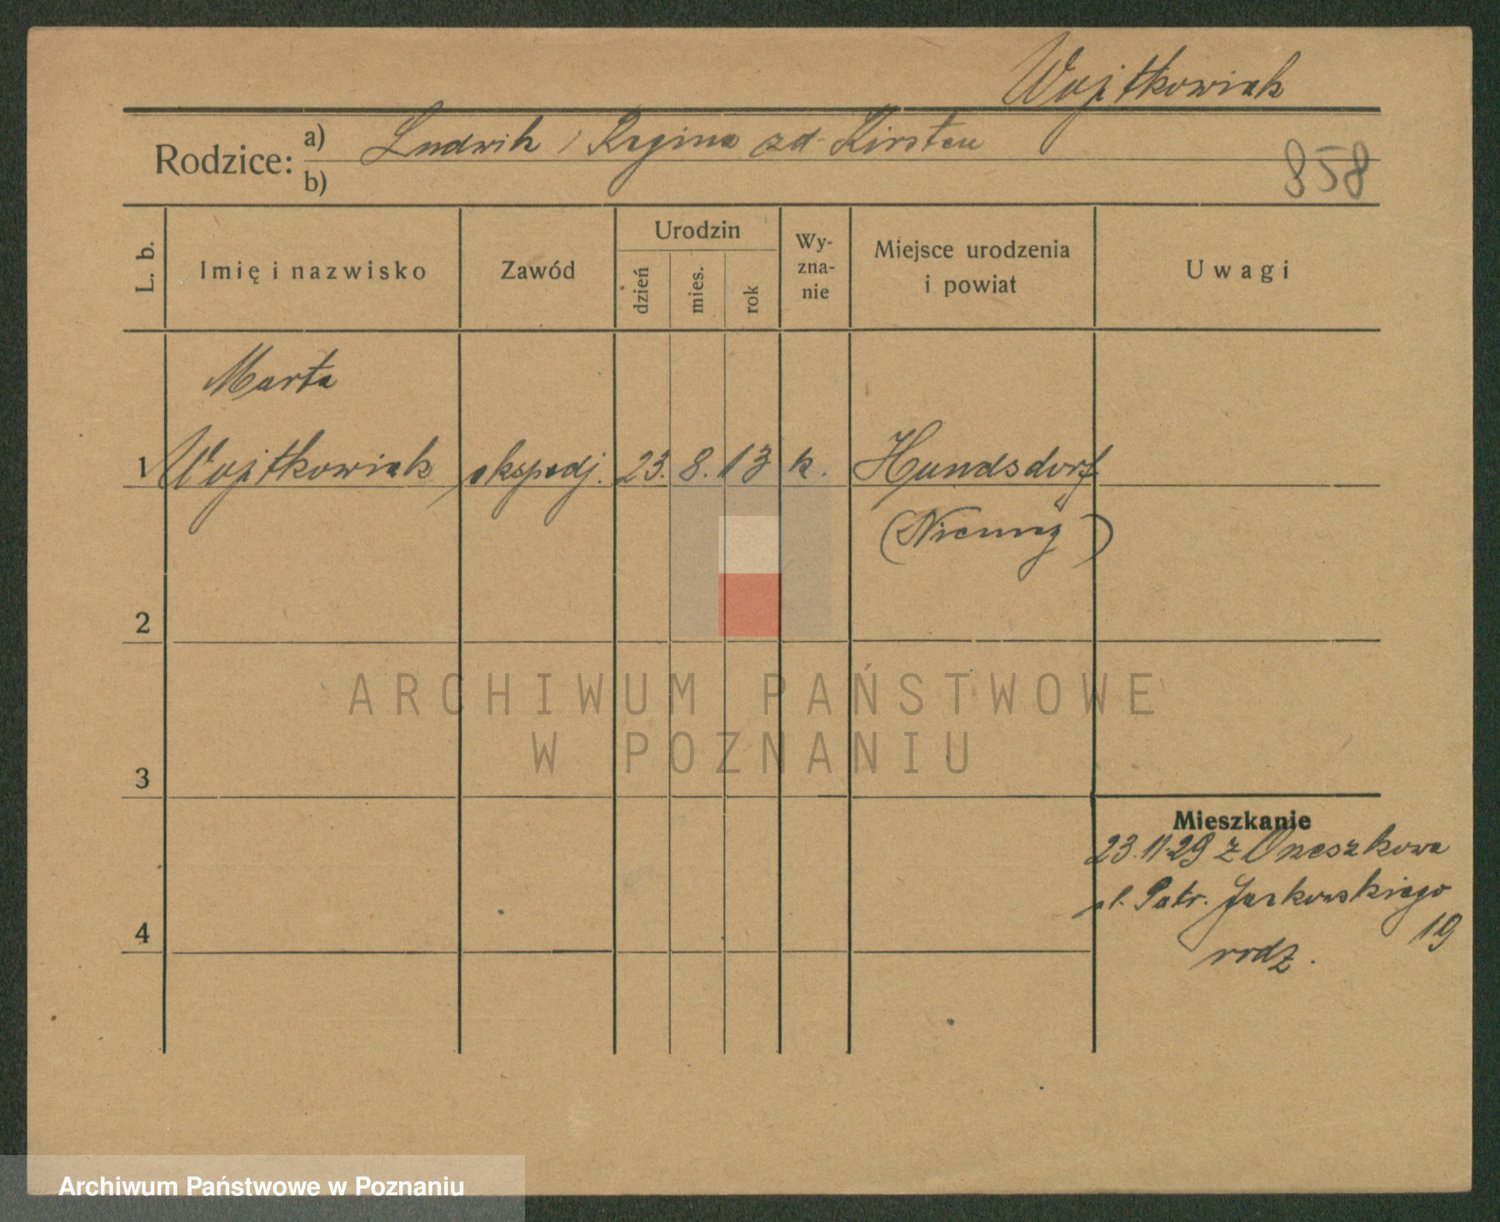 Wojtkowiak
Rodzice: a) Ludwik i Regina zd. Kirsten
b)
858
L. b.
Imię i nazwisko
Zawód
Urodzin
dzień
mies.
rok
Wy-
zna-
nie
Miejsce urodzenia
i powiat
Uwagi
Marta
1 Wojtkowiak ekspedj. 23. 8. 13 k. Hundsdorf
(Niemcy)
2
3
4
Mieszkanie
23.11.29 z
Patr. Jackowskiego
19
rodz.
ARCHIWUM PAŃSTWOWE
W POZNANIU
Archiwum Państwowe w Poznaniu